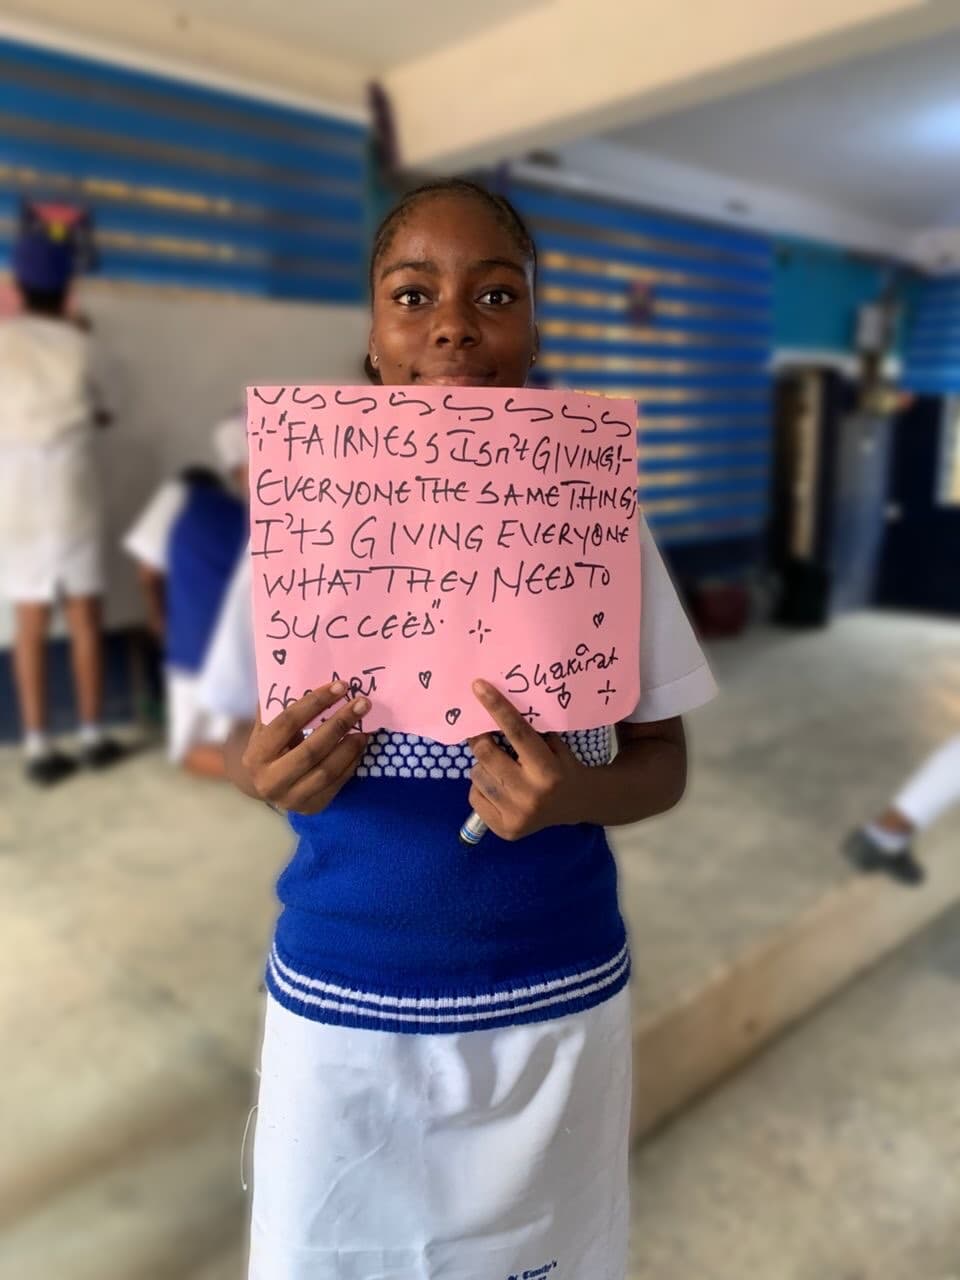 "FAIRNESS Isn't GIVING
EVERYONE THE SAME THING;
I'ts GIVING EVERYONE
WHAT THEY NEED TO
SUCCEED"
ART
Shakirat
St. Timothy's